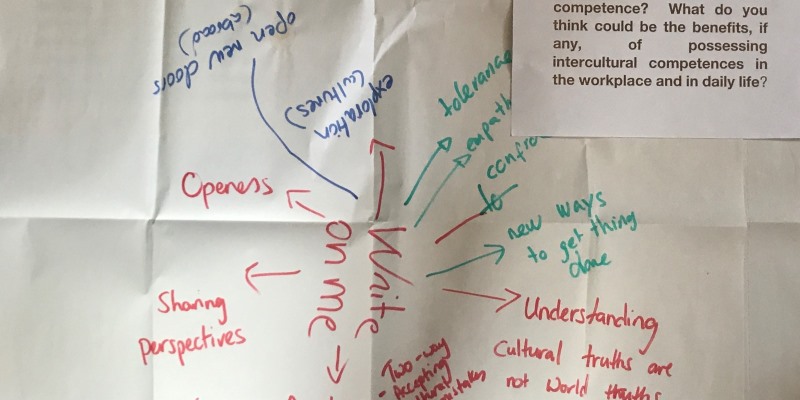 competence? What do you
think could be the benefits, if
any, of possessing
intercultural competences in
the workplace and in daily life?
open new doors
(abroad)
exploration
(cultures)
tolerance
empath
confro
to
new ways
to get thing
done
Openess
Write
on me
Sharing
perspectives
Understanding
Cultural truths are
not World truths
Two-way
- Accepting